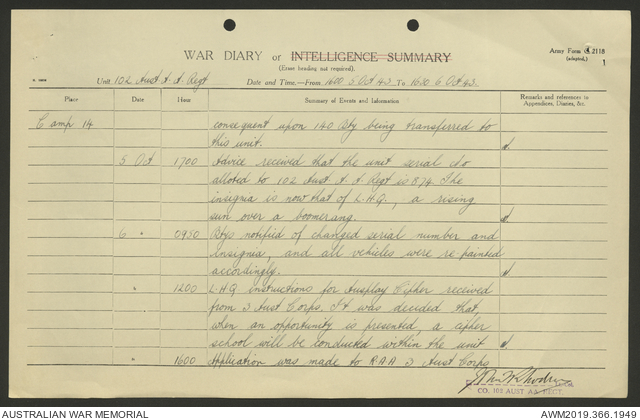 Army Form C 2118
WAR DIARY or INTELLIGENCE SUMMARY
(adapted.)
(Erase heading not required).
1
Unit 102 Aust A.A. Regt Date and Time.—From 1600 5 Oct 43 To 1630 6 Oct 43.
Place Date Hour Summary of Events and Information Remarks and references to Appendices, Diaries, &c.
Camp 14 consequent upon 140 Bty being transferred to
this unit.
5 Oct 1700 Advice received that the unit serial No
alloted to 102 Aust A A Regt is 874. The
insignia is now that of L.H.Q., a rising
sun over a boomerang.
6 " 0930 Btys notified of changed serial number and
insignia, and all vehicles were re-painted
accordingly.
" 1200 L.H.Q. instructions for Cipher received
from 3 Aust Corps. It was decided that,
when an opportunity is presented, a cipher
school will be conducted within the unit
" 1600 Application was made to R.A.A. 3 Aust Corps
CO. 102 AUST AA REGT.
AUSTRALIAN WAR MEMORIAL AWM2019.366.1949